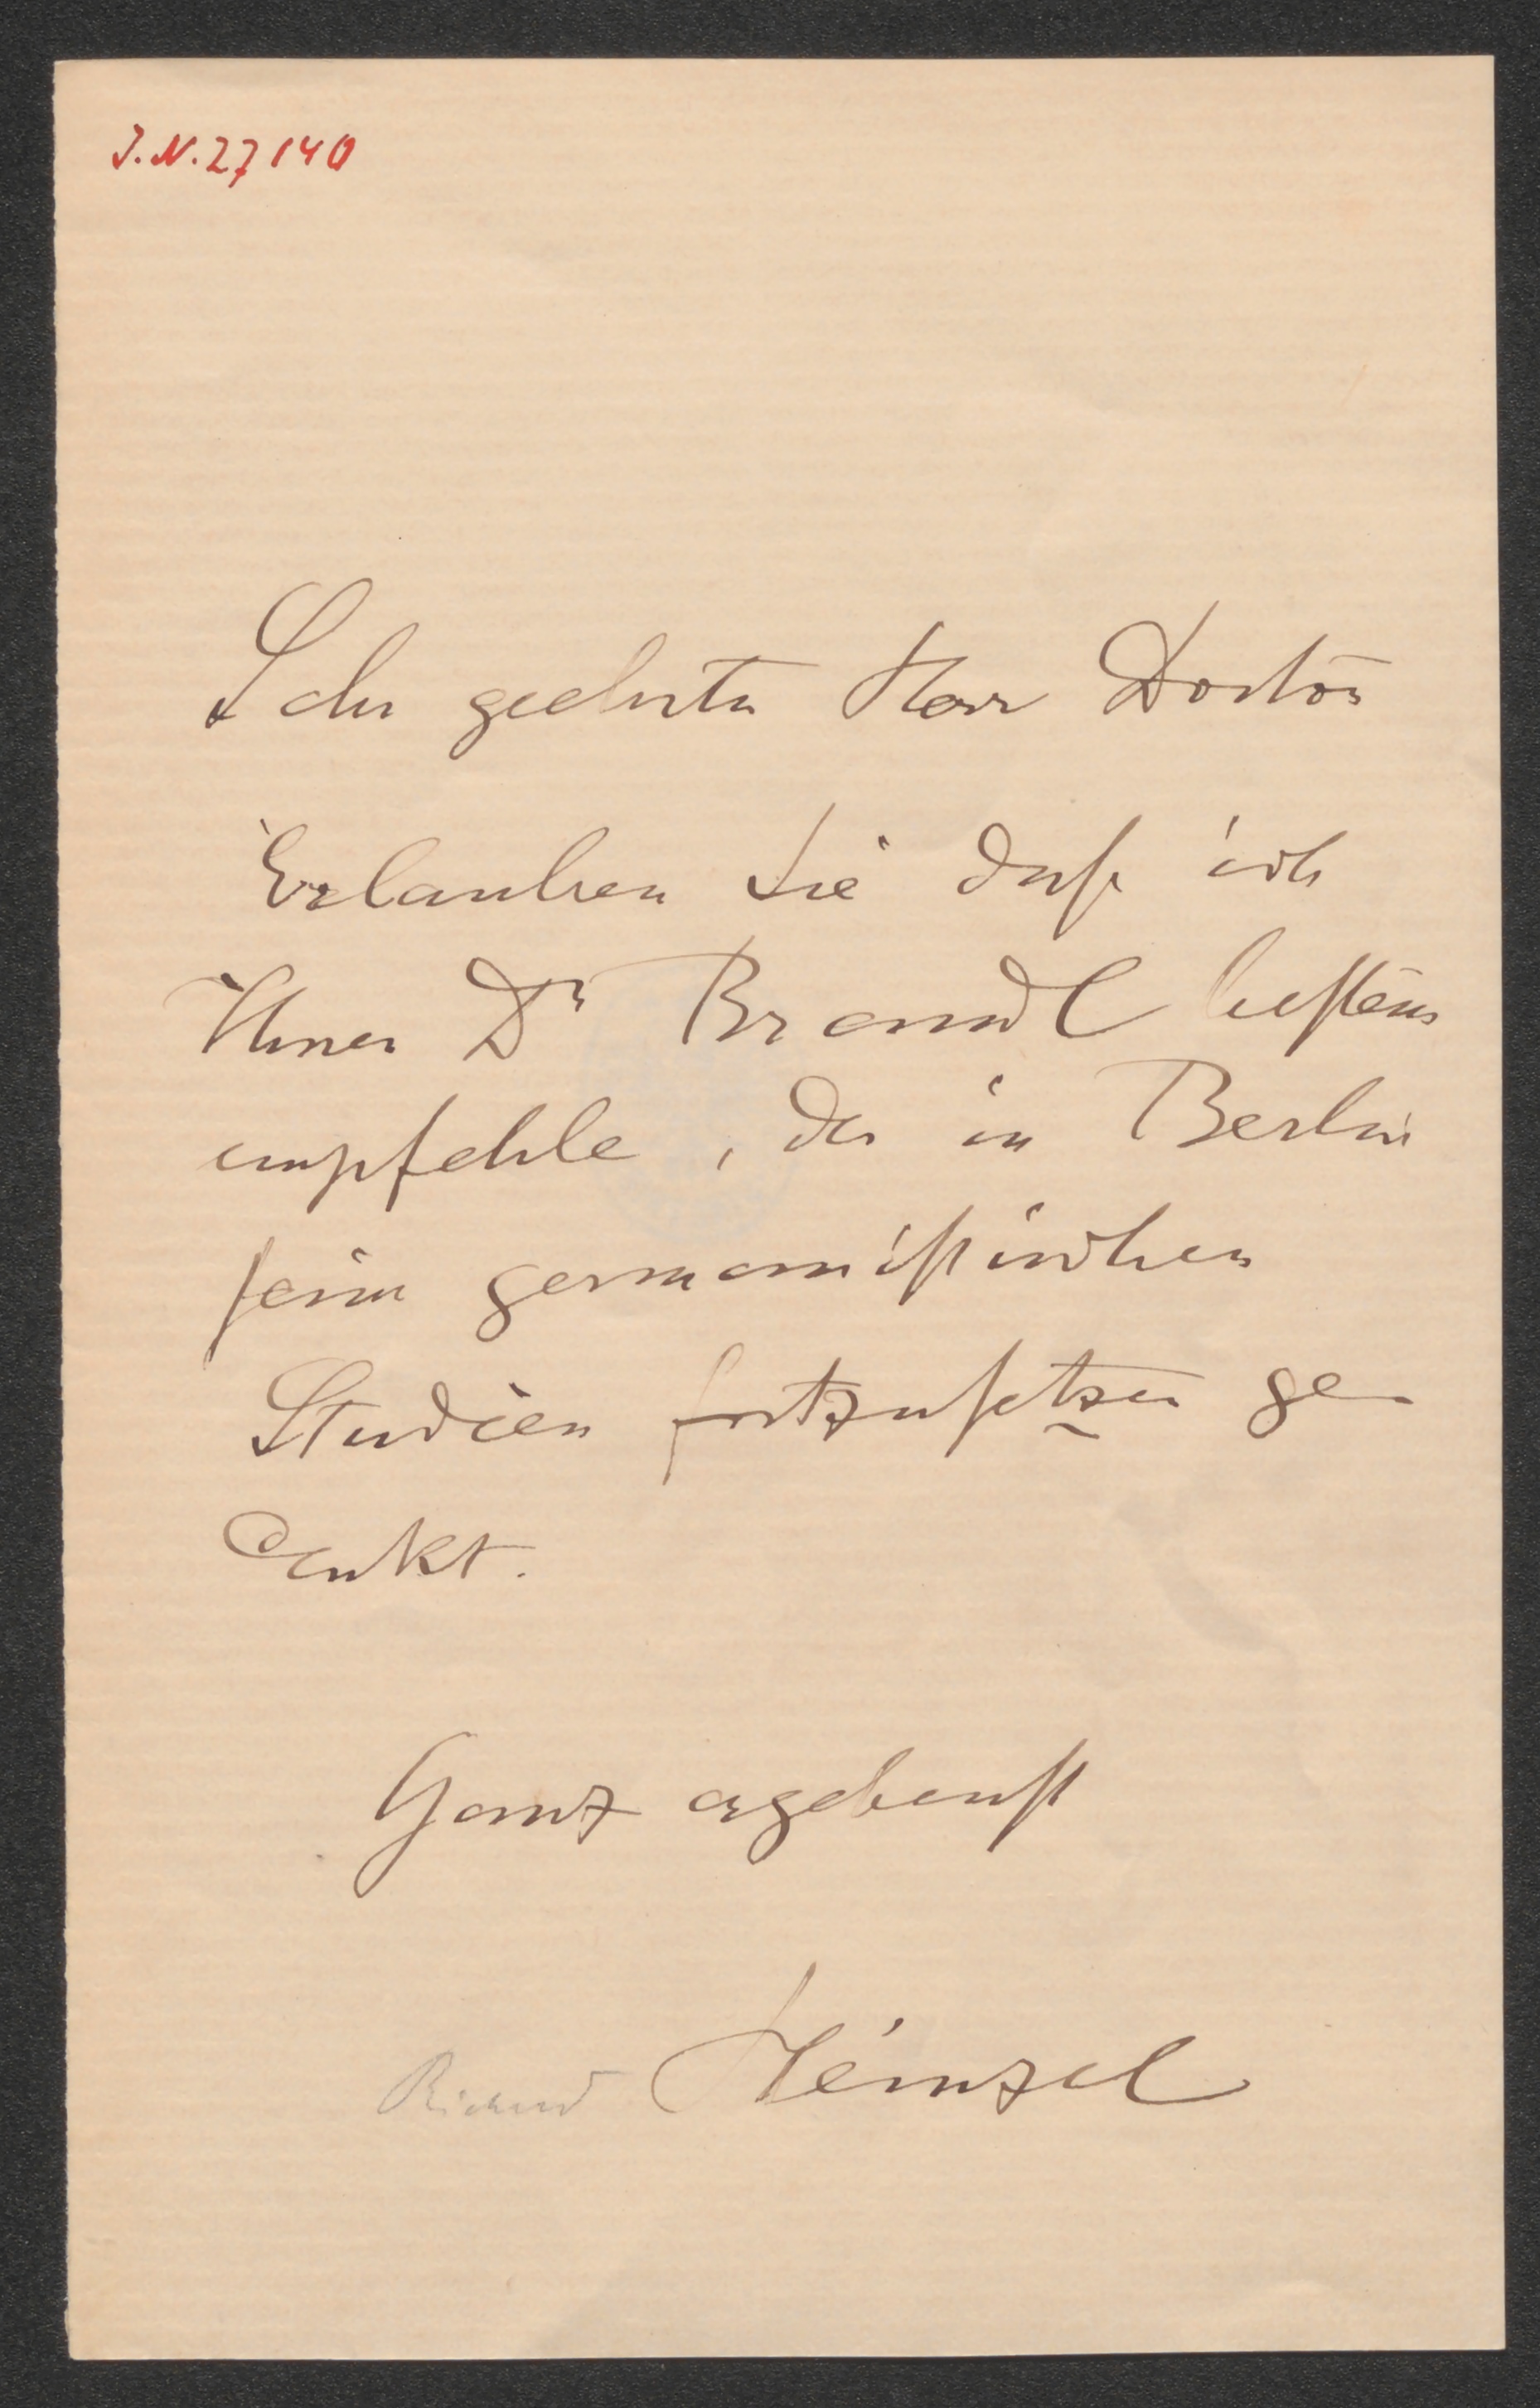 J.N. 27140
Sehr geehrter Herr Doctor
Erlauben Sie daſs ich
Ihnen Dr Brandl bestens
empfehle, der in Berlin
seine germanistischen
Studien fortzusetzen ge-
denkt.
Ganz ergebenst
Richard Heinzel